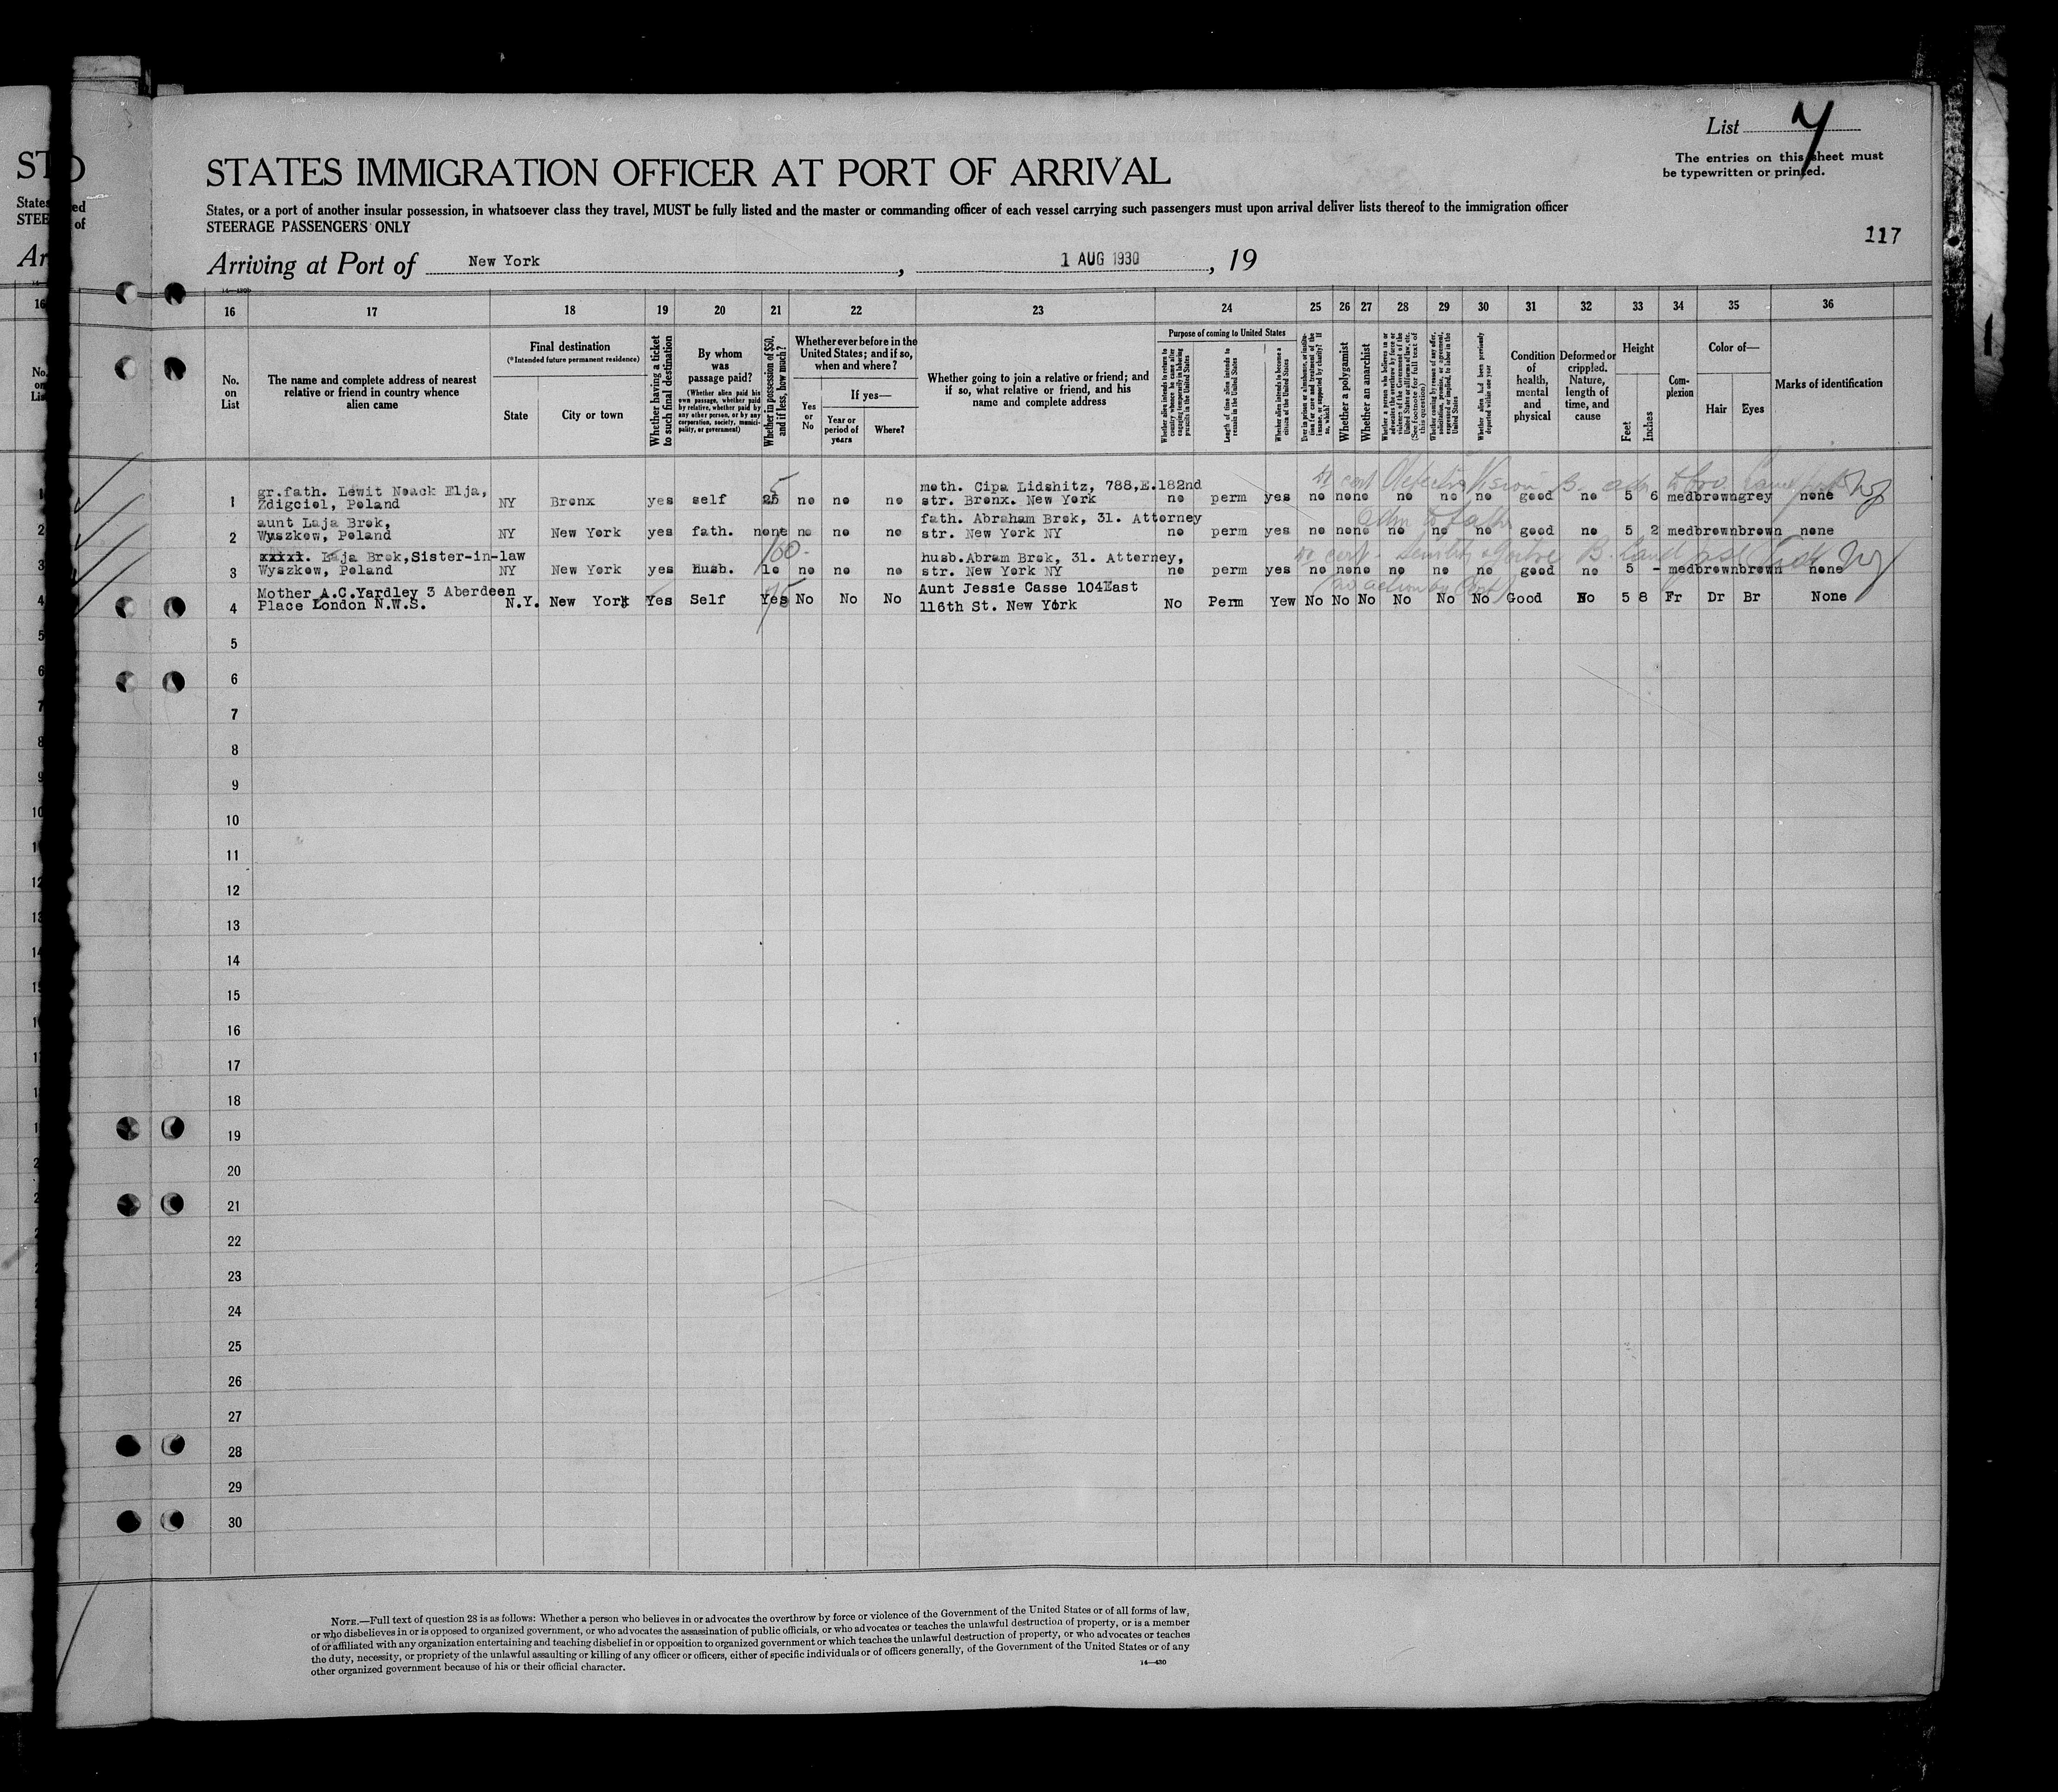 List 4
The entries on this sheet must
be typewritten or printed.
STATES IMMIGRATION OFFICER AT PORT OF ARRIVAL
States, or a port of another insular possession, in whatsoever class they travel, MUST be fully listed and the master or commanding officer of each vessel carrying such passengers must upon arrival deliver lists thereof to the immigration officer
STEERAGE PASSENGERS ONLY
117
Arriving at Port of New York, 1 AUG 1930, 19
16 17 18 19 20 21 22 23 24 25 26 27 28 29 30 31 32 33 34 35 36
No.
on
List
The name and complete address of nearest
relative or friend in country whence
alien came
Final destination
(*Intended future permanent residence)
State
City or town
Whether having a ticket
to such final destination
By whom
was
passage paid?
(Whether alien paid his
own passage, whether paid
by relative, whether paid by
any other person, or by any
corporation, society, munici-
pality, or government)
Whether in possession of $50,
and if less, how much?
Whether ever before in the
United States; and if so,
when and where?
Yes
or
No
If yes—
Year or
period of
years
Where?
Whether going to join a relative or friend; and
if so, what relative or friend, and his
name and complete address
Purpose of coming to United States
Whether alien intends to return to
country whence he came after
engaging temporarily in laboring
pursuits in the United States
Length of time alien intends to
remain in the United States
Whether alien intends to become a
citizen of the United States
Ever in prison or almshouse, or institu-
tion for care and treatment of the
insane, or supported by charity? If
so, which?
Whether a polygamist
Whether an anarchist
(See footnote for full text of
this question)
Whether alien had been previously
deported within one year
Condition
of
health,
mental
and
physical
Deformed or
crippled.
Nature,
length of
time, and
cause
Height
Feet
Inches
Com-
plexion
Color of—
Hair
Eyes
Marks of identification
gr.fath. Lewit Noack Elja, 5 moth. Cipa Lidshitz, 788,E.182nd
1 Zdigciol, Poland NY Bronx yes self 25 no no no str. Bronx. New York no perm yes no none no no no good no 5 6 med brown grey none
aunt Laja Brok, fath. Abraham Brok, 31. Attorney adm to father
2 Wyszkow, Poland NY New York yes fath. none no no no str. New York NY no perm yes no none no no no good no 5 2 med brown brown none
xxxxx. Laja Brok,Sister-in-law 100- husb.Abram Brok, 31. Attorney,
3 Wyszkow, Poland NY New York yes husb. 10 no no no str. New York NY no perm yes no none no no no good no 5 - med brown brown none
Mother A.C.Yardley 3 Aberdeen 75 Aunt Jessie Casse 104East (no action by Cert)
4 Place London N.W.S. N.Y. New York Yes Self Yes No No No 116th St. New York No Perm Yew No No No No No No Good No 5 8 Fr Dr Br None
5
6
7
8
9
10
11
12
13
14
15
16
17
18
19
20
21
22
23
24
25
26
27
28
29
30
NOTE.—Full text of question 28 is as follows: Whether a person who believes in or advocates the overthrow by force or violence of the Government of the United States or of all forms of law,
or who disbelieves in or is opposed to organized government, or who advocates the assassination of public officials, or who advocates or teaches the unlawful destruction of property, or is a member
of or affiliated with any organization entertaining and teaching disbelief in or opposition to organized government or which teaches the unlawful destruction of property, or who advocates or teaches
the duty, necessity, or propriety of the unlawful assaulting or killing of any officer or officers, either of specific individuals or of officers generally, of the Government of the United States or of any
other organized government because of his or their official character.
14—430